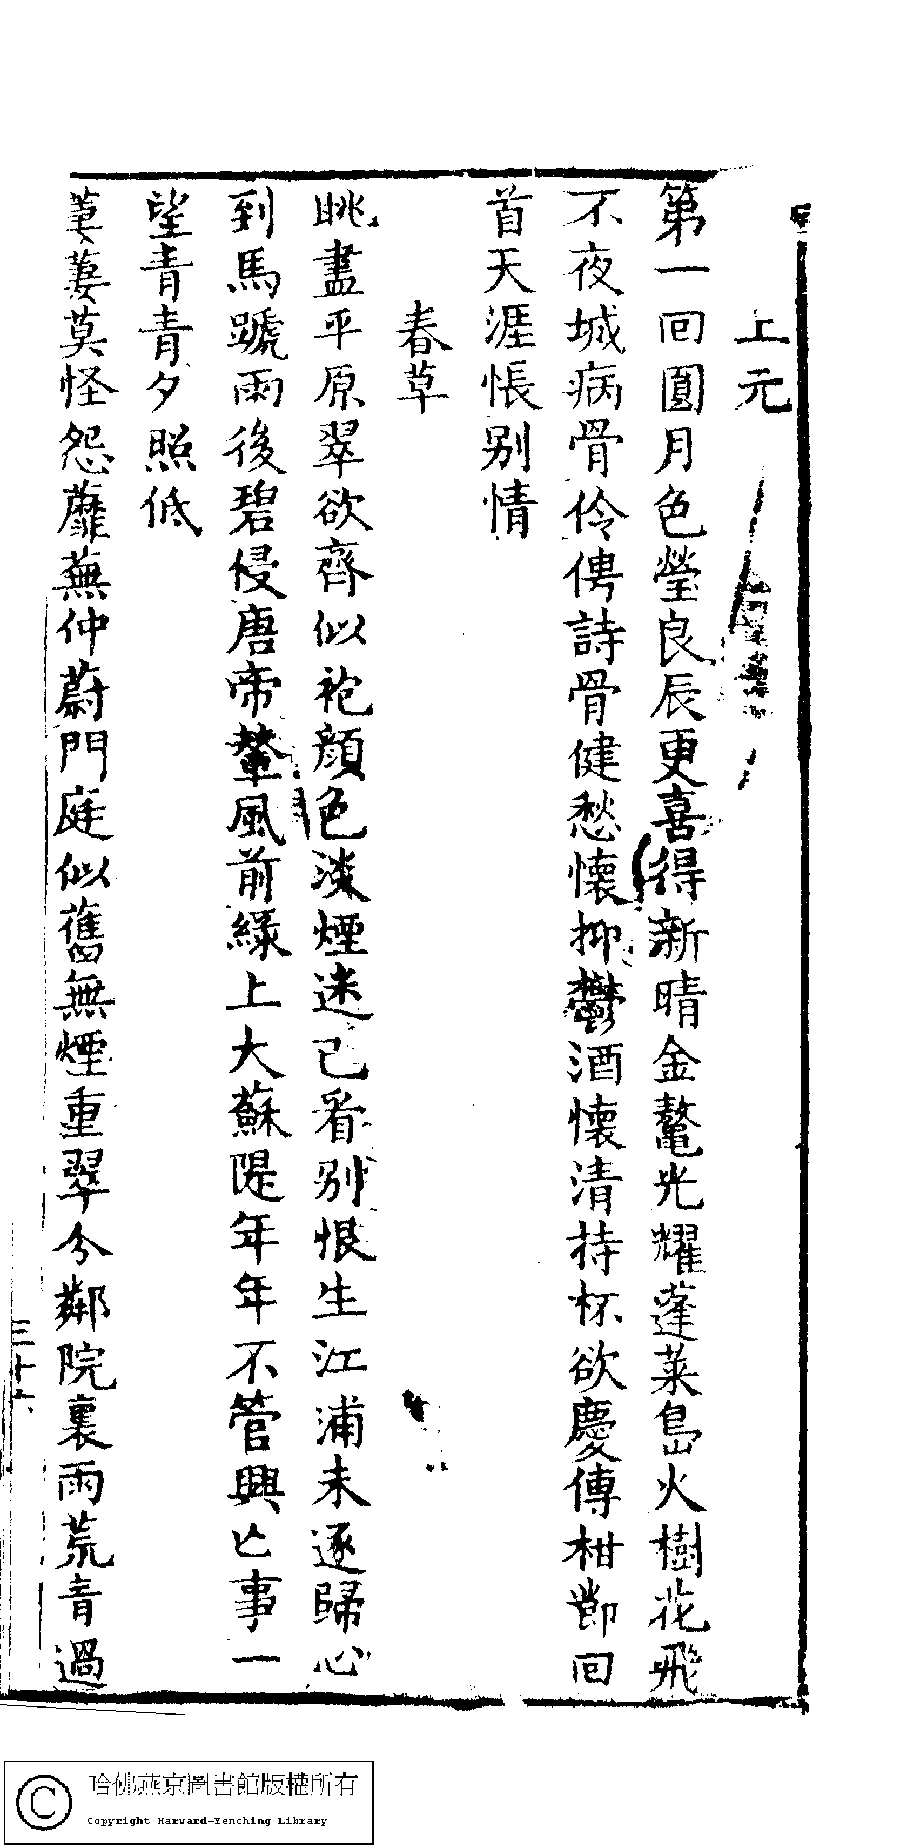 上元
第一回圓月色瑩良辰更喜得新晴金鰲光耀蓬萊島火樹花飛
不夜城病骨伶俜詩骨健愁懷抑鬱酒懷清持杯欲慶傳柑節回
首天涯悵别情
春草
眺盡平原翠欲齊似袍顔色淡煙迷已看别恨生江浦未逐歸心
到馬蹏雨後碧侵唐帝輦風前綠上大蘇隄年年不管興亡事一
望青青夕照低
萋萋莫怪怨蘼蕪仲蔚門庭似舊無煙重翠分鄰院裏雨荒青過
三十六
哈佛燕京圖書館版權所有
Copyright Harvard-Yenching Library